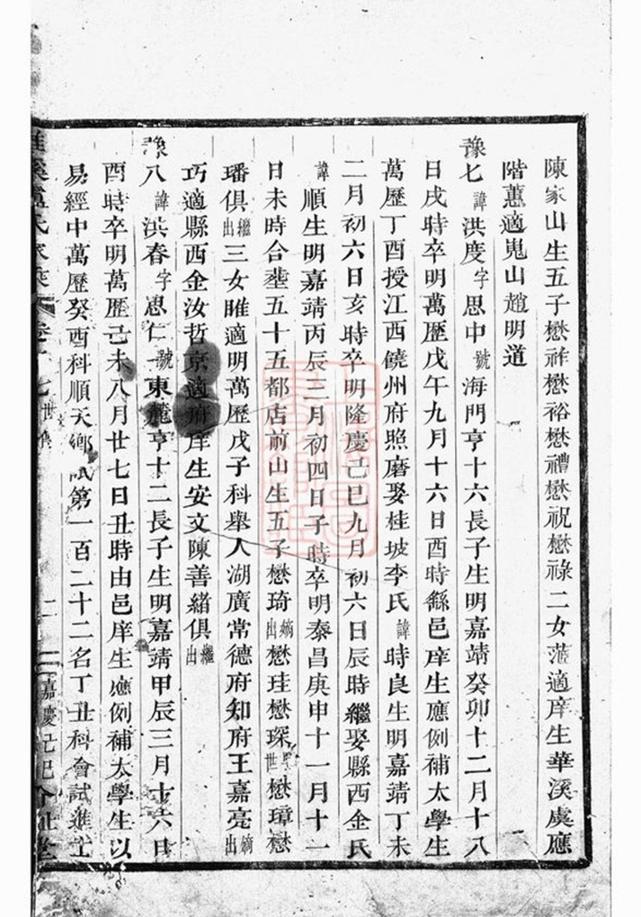 陳家山生五子懋祚懋裕懋禮懋祝懋祿二女蕰適庠生華溪虞應
階蕙適鬼山趙明道
豫七諱洪度字思中號海門亨十六長子生明嘉靖癸卯十二月十八
日戌時卒明萬歷戊午九月十六日酉時繇邑庠生應例補太學生
萬歷丁酉授江西饒州府照磨娶桂坡李氏諱時良生明嘉靖丁未
二月初六日亥時卒明隆慶己巳九月初六日辰時繼娶縣西金氏
諱順生明嘉靖丙辰三月初四日子時卒明泰昌庚申十一月十一
日未時合塟五十五都店前山生五子懋琦嫡出懋珪懋琛世懋璋懋
璠俱繼出三女睢適明萬歷戊子科舉人湖廣常德府知府王嘉亮嫡出
巧適縣西金汝哲京適庠生安文陳善緒俱繼出
豫八諱洪春字思仁號東麓亨十二長子生明嘉靖甲辰三月十六日
酉時卒明萬歷己未八月廿七日丑時由邑庠生應例補太學生以
易經中萬歷癸酉科順天鄉試第一百二十二名丁丑科會試進士
氏家乘卷 世 嘉慶己巳